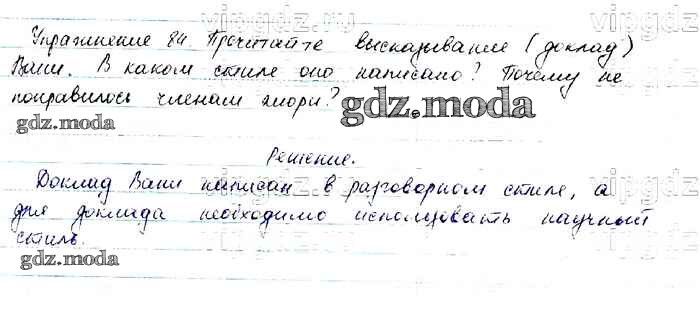 vipgdz
Упражнение 84. Прочитайте высказывание (доклад)
Вани. В каком стиле оно написано? Почему не
понравилось членам жюри?
gdz.moda
gdz.moda
Решение.
vipgdz
Доклад Вани написан в разговорном стиле, а
для доклада необходимо использовать научный
стиль.
vipgdz
gdz.moda